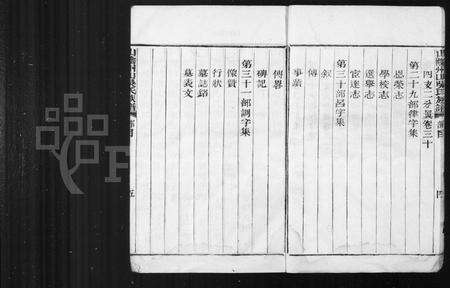 四支二分翼卷三十
第二十九部律字集
恩榮志
學校志
選舉志
宦達志
第三十部呂字集
叙
傳
事蹟
傳畧
碑記
第三十一部調字集
像贊
行狀
墓誌銘
墓表文
五